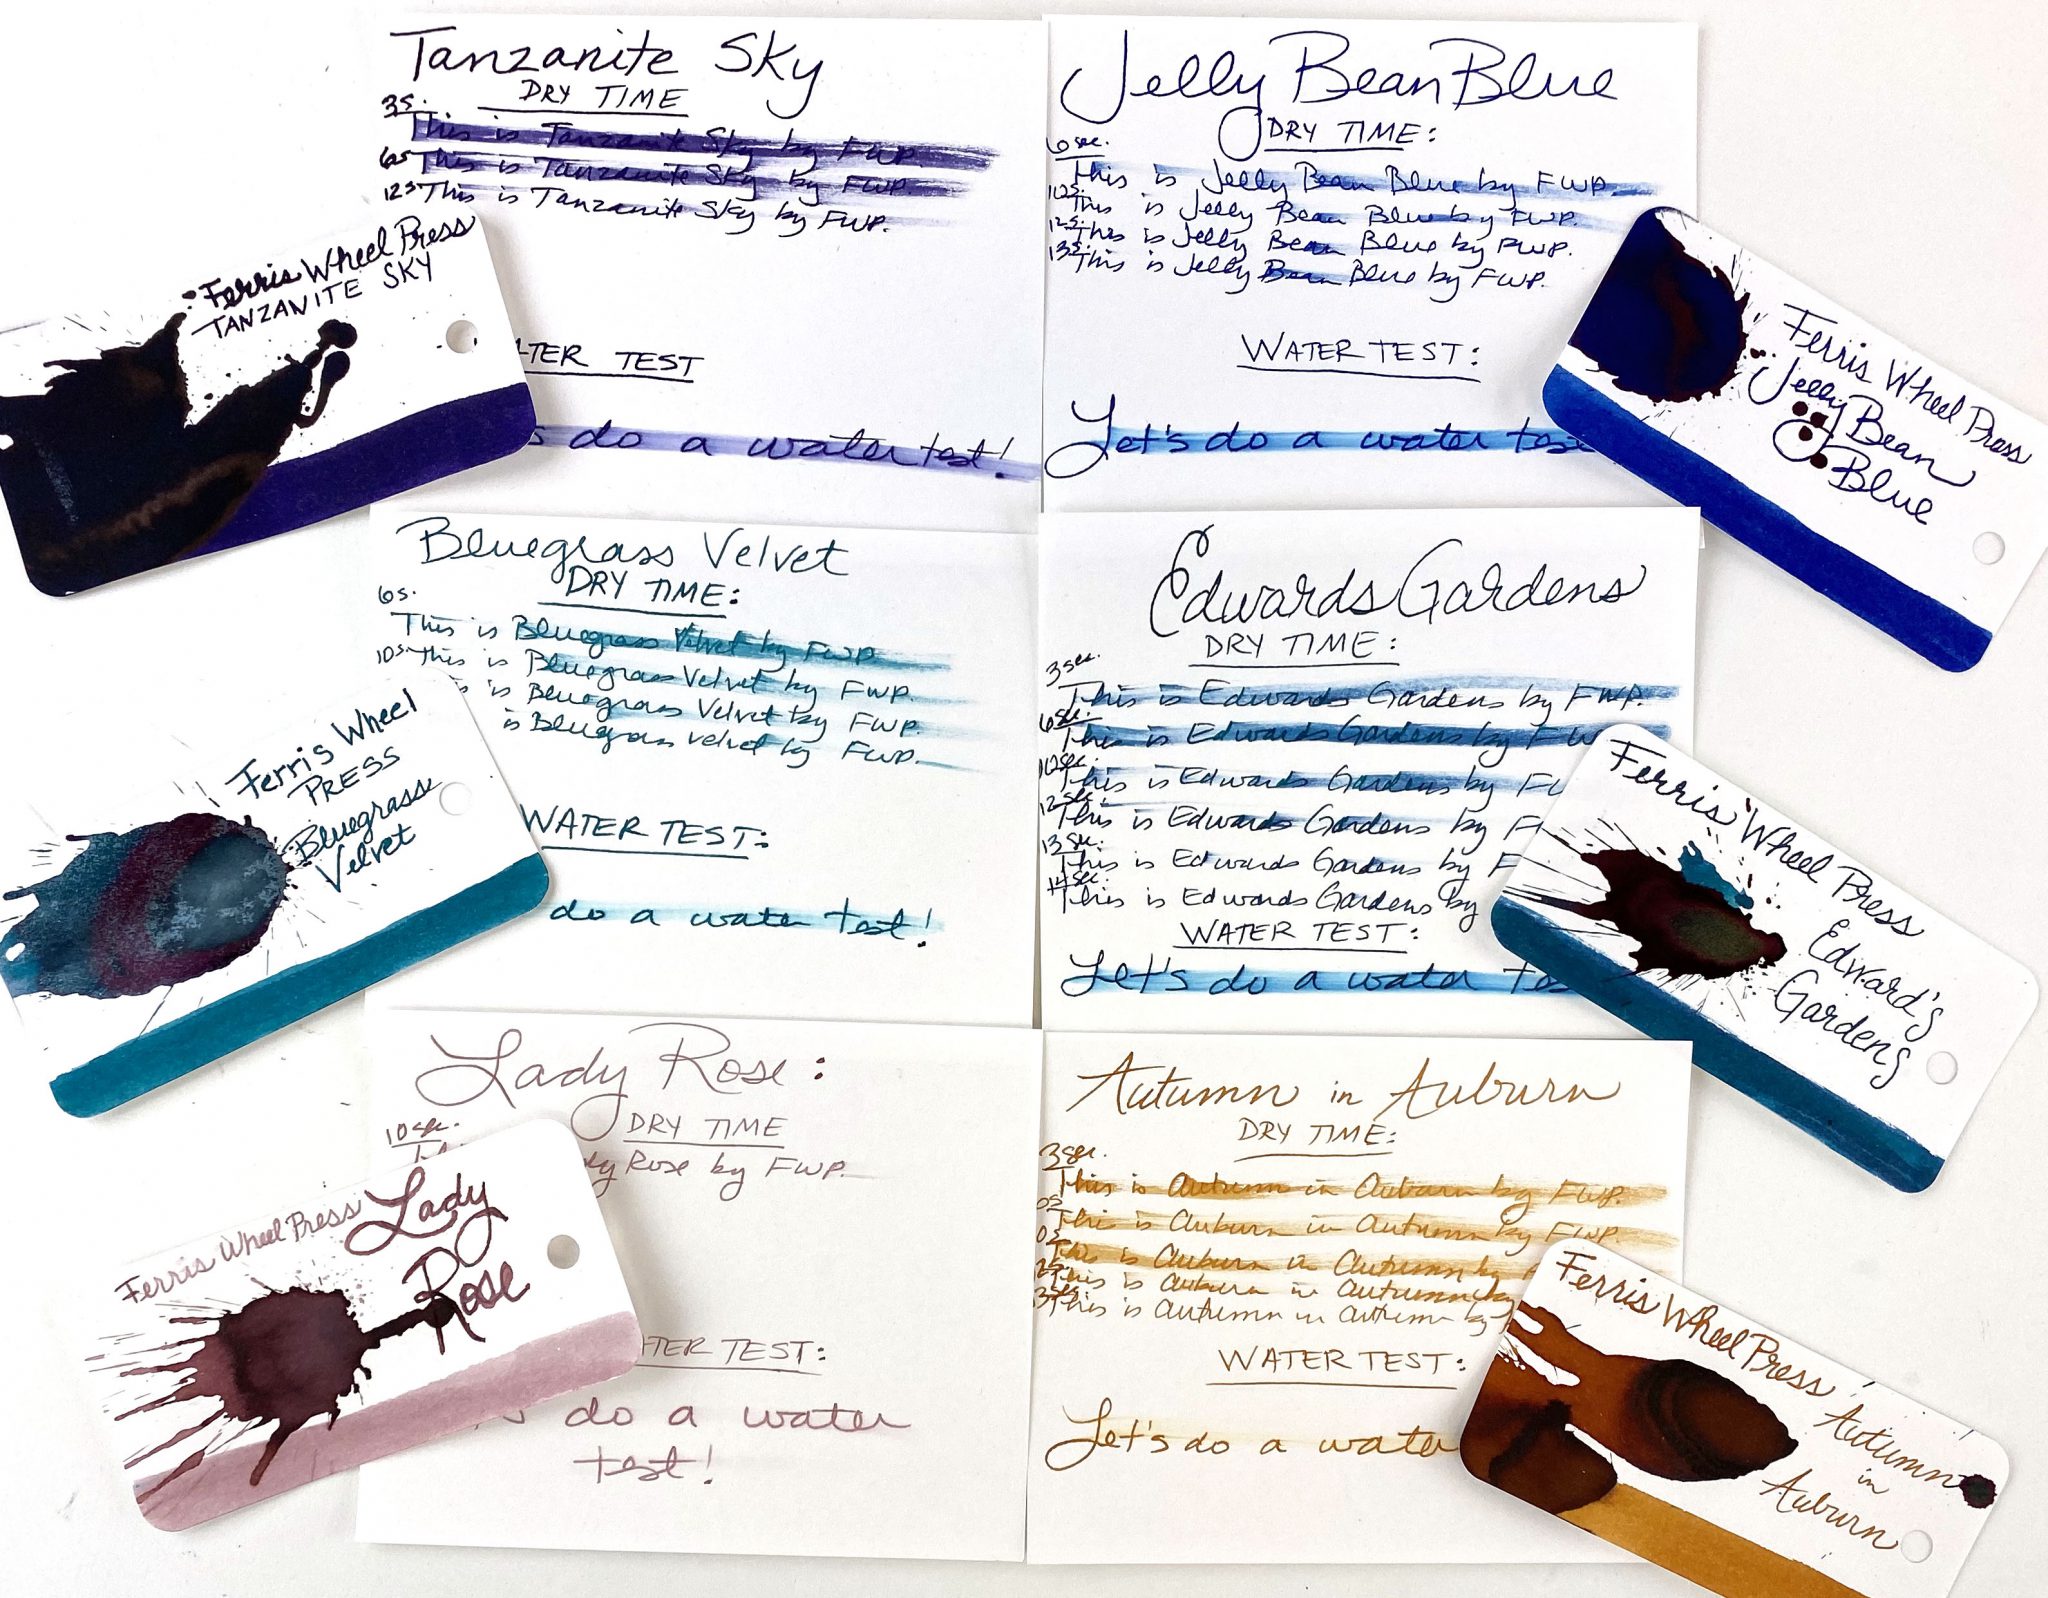 Tanzanite Sky
DRY TIME
3s.
This is Tanzanite Sky by FWP.
6s
This is Tanzanite Sky by FWP.
12s This is Tanzanite Sky by FWP.
WATER TEST
do a water test!
Ferris Wheel Press
TANZANITE SKY
Jelly Bean Blue
DRY TIME:
6sec.
This is Jelly Bean Blue by FWP.
10s.
This is Jelly Bean Blue by FWP.
12s.
This is Jelly Bean Blue by FWP.
13s.
This is Jelly Bean Blue by FWP.
WATER TEST:
Let's do a water test
Ferris Wheel Press
Jelly Bean
Blue
Bluegrass Velvet
DRY TIME:
6s.
This is Bluegrass Velvet by FWP.
10s. This is Bluegrass Velvet by FWP.
is Bluegrass Velvet by FWP.
is Bluegrass Velvet by FWP.
WATER TEST:
do a water test!
Ferris Wheel
PRESS
Bluegrass
Velvet
Edwards Gardens
DRY TIME:
3sec.
This is Edwards Gardens by FWP.
6sec.
This is Edwards Gardens by
10sec.
This is Edwards Gardens by
12sec.
This is Edwards Gardens by
13sec.
This is Edwards Gardens by
14sec.
This is Edwards Gardens by
WATER TEST:
Let's do a water
Ferris Wheel Press
Edward's
Gardens
Lady Rose:
DRY TIME
10sec.
Rose by FWP.
WATER TEST:
do a water
test!
Ferris Wheel Press Lady
Rose
Autumn in Auburn
DRY TIME:
3sec.
This is Autumn in Auburn by FWP.
This is Auburn in Autumn by FWP.
This is Auburn in Autumn by
This is Auburn in Autumn by
This is Autumn in Autumn by
WATER TEST:
Let's do a water
Ferris Wheel Press
Autumn
in
Auburn